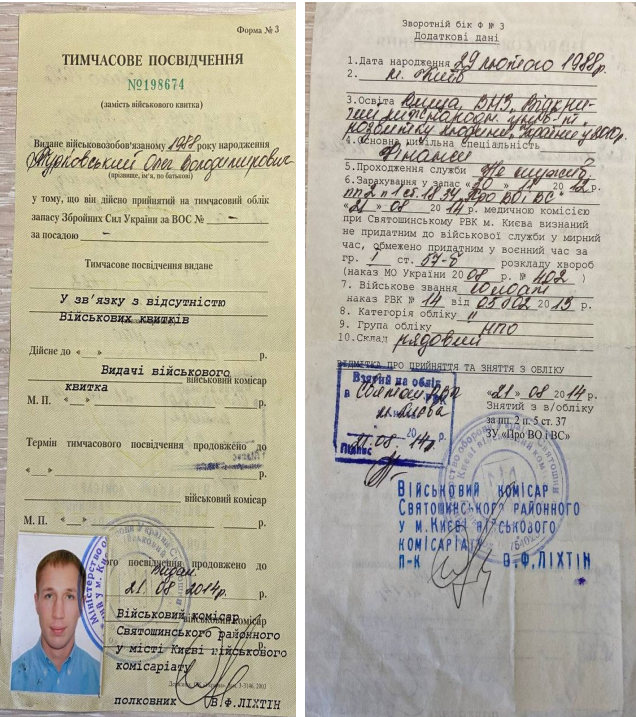 Форма № 3
ТИМЧАСОВЕ ПОСВІДЧЕННЯ
№198674
(замість військового квитка)
Видане військовозобов'язаному 1988 року народження
Олег Володимирович
(прізвище, ім'я, по батькові)
у тому, що він дійсно прийнятий на тимчасовий облік
запасу Збройних Сил України за ВОС № –
за посадою –
Тимчасове посвідчення видане
У зв'язку з відсутністю
Військових квитків
Дійсне до « » р.
Видачі військового
квитка
військовий комісар
М. П. « » р.
Термін тимчасового посвідчення продовжено до
« » р.
військовий комісар
М. П. « » р.
посвідчення продовжено до
Видан.
21 08 2014р.
Військовий комісар
Святошинського районного
у місті Києві військового
комісаріату
полковник В.Ф.ЛІХТІН
Зворотній бік Ф № 3
Додаткові дані
1.Дата народження 29 лютого 1988р.
2. м. Київ
3.Освіта Вища, ВНЗ, Відкри-
тий міжнародн. унів-т
розвитку людини "Україна" у 2010р.
4.Основна цивільна спеціальність
Фінанси
5.Проходження служби Не служив
6.Зарахування у запас «20» 11 2012 р.
"Про ВО і ВС"
«21» 08 2014 р. медичною комісією
при Святошинському РВК м. Києва визнаний
не придатним до військової служби у мирний
час, обмежено придатним у воєнний час за
гр. I ст. розкладу хвороб
(наказ МО України 2008 р. № 402 )
7. Військове звання солдат
наказ РВК № 14 від 05 02 2013 р.
8. Категорія обліку II
9. Група обліку НПО
10.Склад рядовий
ВІДМІТКА ПРО ПРИЙНЯТТЯ ТА ЗНЯТТЯ З ОБЛІКУ
Взятий на облік
в РВК
м. Києва
21.08. 2014р.
Підпис
«21» 08 2014 р.
Знятий з в/обліку
за пп. 2 п. 5 ст. 37
ЗУ «Про ВО і ВС»
Військовий комісар
Святошинського районного
у м.Києві військового
комісаріату
п-к В.Ф.ЛІХТІН